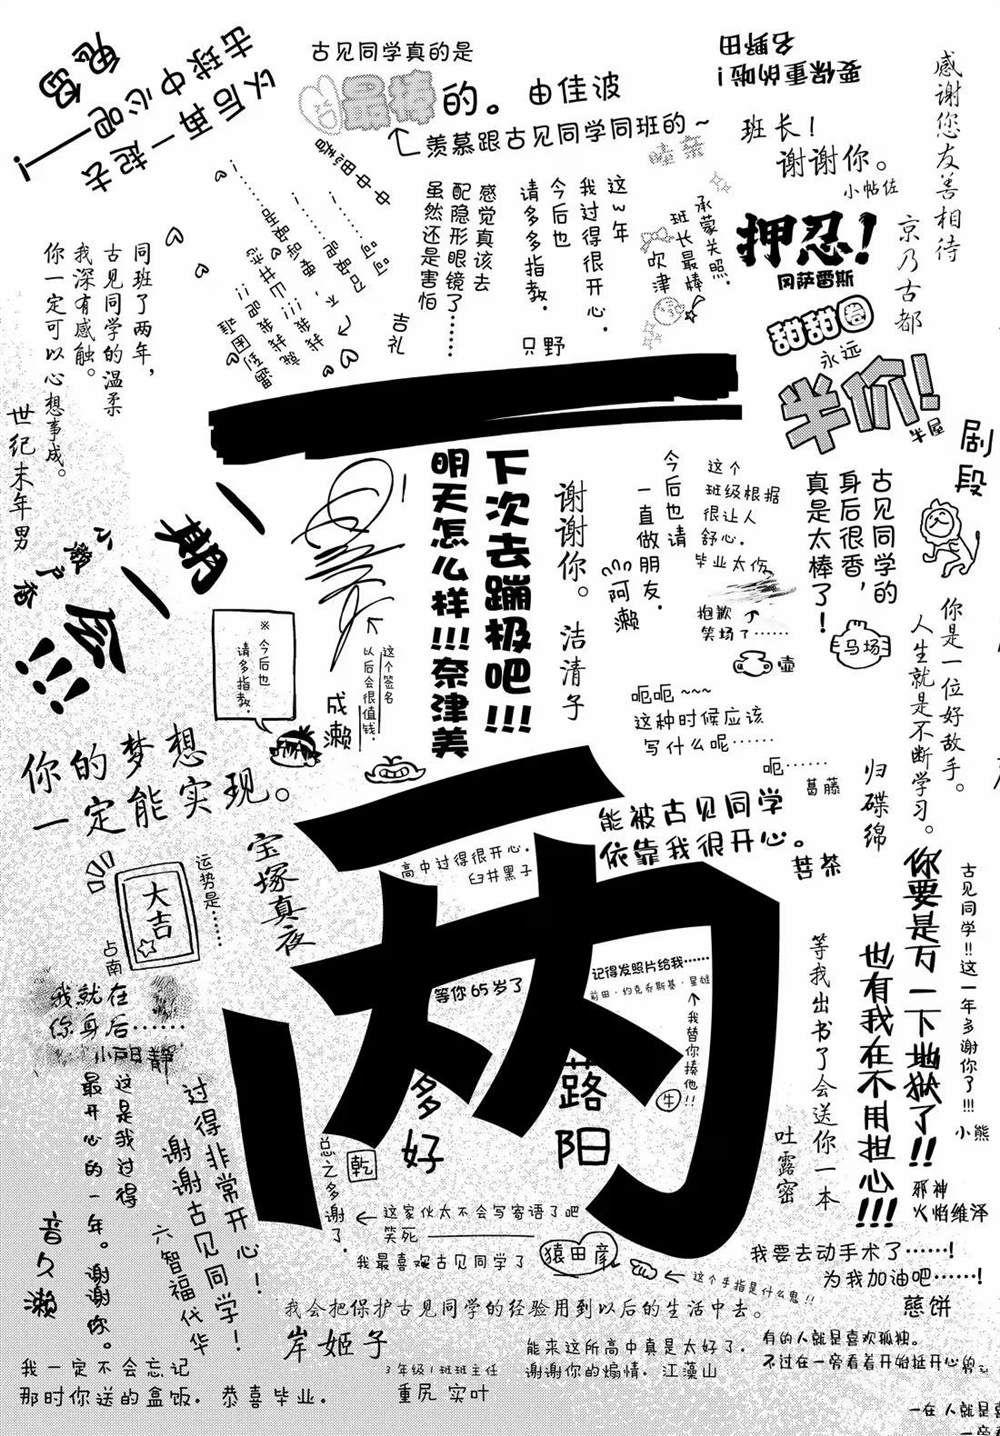 以后再一起去
古球中心吧——！
古见同学真的是
最棒的。由佳波
羡慕跟古见同学同班的~
要保重的啦！
名野田
班长！
谢谢你。
小帖佐
感谢您友善相待
京乃古都
押忍！
冈萨雷斯
甜甜圈
永远
半价！
半屋
承蒙关照，
班长最棒
吹津
这w年
我过得很开心，
今后也
请多多指教.
只野
感觉真该去
配隐形眼镜了……
虽然还是害怕
吉礼
中中田毒
同班了两年，
古见同学的温柔
我深有感触。
你一定可以心想事成。
世纪末年男
一期一会!!!
小濑户
※今后也
请多指教.
这个签名
以后会很值钱.
成濑
下次去蹦极吧!!!
明天怎么样!!!奈津美
谢谢你。
洁清子
今后也请
一直做朋友.
阿濑
这个
班级根据
很让人
舒心.
毕业太伤
抱歉
笑场了……
壶
古见同学的
身后很香，
真是太棒了！
马场
剧段
你是一位好敌手。
人生就是不断学习。
归碟绵
呃呃~~~
这种时候应该
写什么呢……
呃……
葛藤
你的梦想
一定能实现。
宝塚真夜
运势是……
大吉
占南
能被古见同学
依靠我很开心。
苔茶
高中过得很开心.
臼井黑子
两
等你65岁了
记得发照片给我……
前田·约克乔斯基·星雄
我替你揍他!!
牛
多好
蕗阳
你要是万一下地狱了!!
也有我在不用担心!!!
邪神
火焰维泽
古见同学!!这一年多谢你了!!!
小熊
等我出书了会送你一本
吐露密
我就在
你身后……
小阳静
这是我过得
最开心的一年。谢谢你。
音久濑
过得非常开心！
谢谢古见同学！
六智福代华
总之多谢了.
乾
这家伙太不会写寄语了吧
笑死
我最喜欢古见同学了
猿田彦
这个手指是什么鬼!!
我要去动手术了……！
为我加油吧……！
慈饼
我会把保护古见同学的经验用到以后的生活中去。
岸姬子
我一定不会忘记
那时你送的盒饭. 恭喜毕业.
3年级1班班主任
重尻 实叶
能来这所高中真是太好了.
谢谢你的煽情. 江藻山
有的人就是喜欢孤独。
不过在一旁看着开始挺开心的